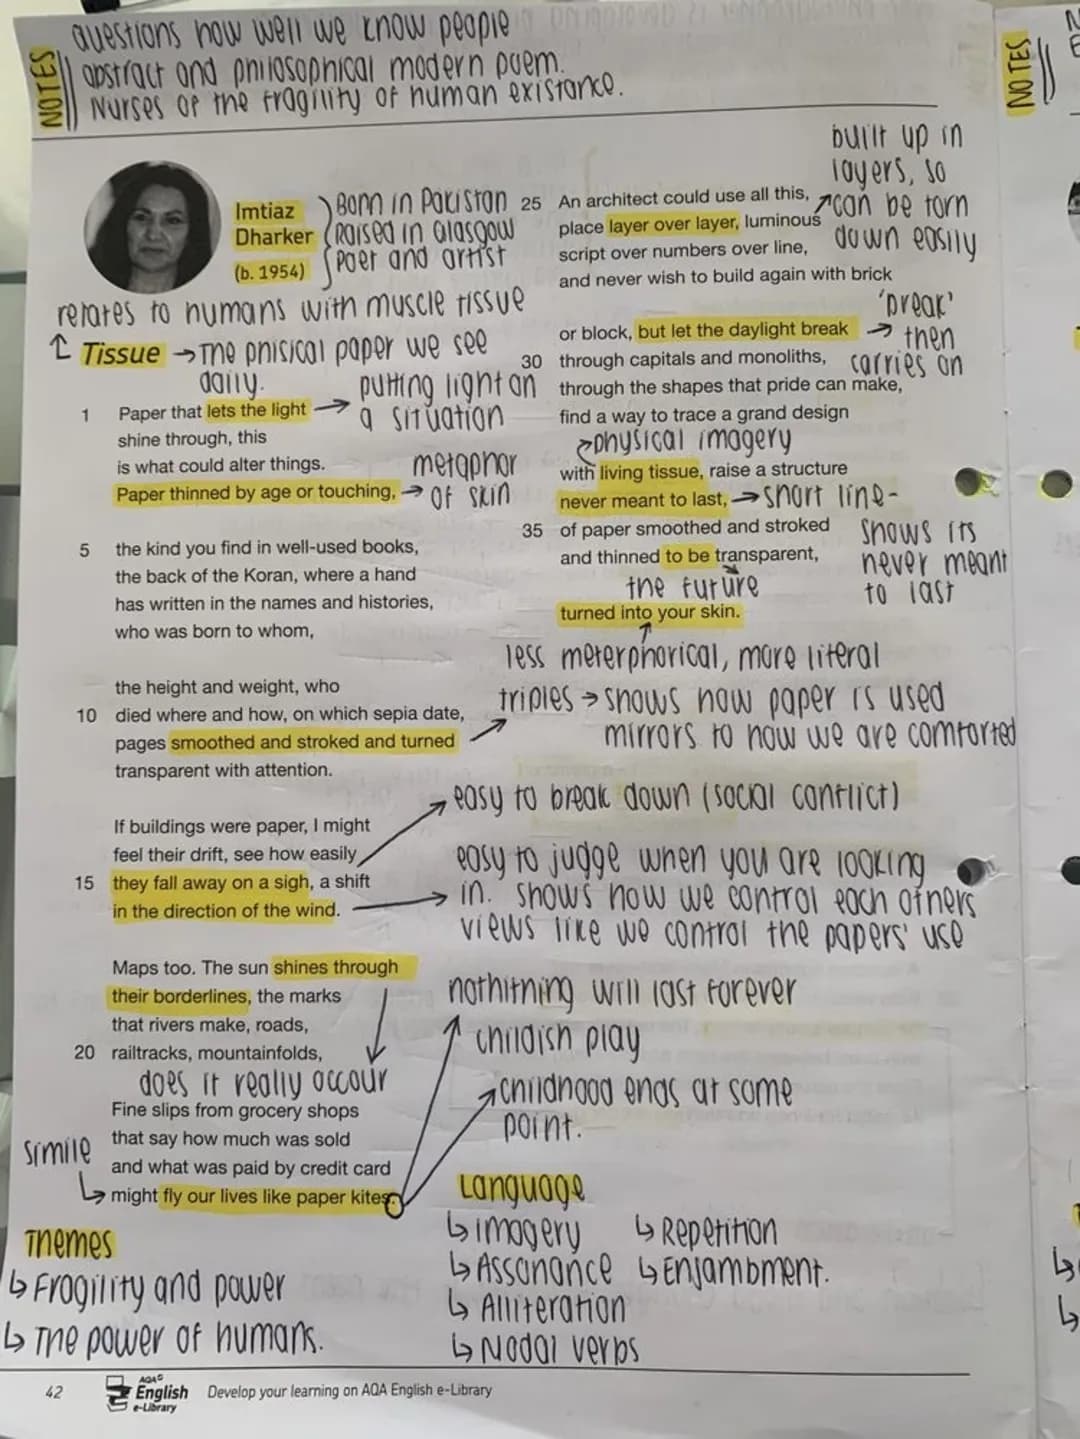 questions how well we know people
abstract and philosophical modern poem.
Nurses of the fragility of human existance.
NOTES
NOTES
Imtiaz
Dharker
(b. 1954)
Born in Pakistan
Raised in Glasgow
Poet and artist
relates to humans with muscle tissue
Tissue → The phisical paper we see
daily.
1 Paper that lets the light
shine through, this
is what could alter things.
Paper thinned by age or touching,
putting light on
a situation
metaphor
of skin
5 the kind you find in well-used books,
the back of the Koran, where a hand
has written in the names and histories,
who was born to whom,
the height and weight, who
10 died where and how, on which sepia date,
pages smoothed and stroked and turned
transparent with attention.
triples → shows how paper is used
mirrors to how we are comforted
If buildings were paper, I might
feel their drift, see how easily
15 they fall away on a sigh, a shift
in the direction of the wind.
easy to break down (social conflict)
easy to judge when you are looking
in. shows how we control each others
views like we control the papers' use
Maps too. The sun shines through
their borderlines, the marks
that rivers make, roads,
20 railtracks, mountainfolds,
does it really occour
Fine slips from grocery shops
that say how much was sold
and what was paid by credit card
might fly our lives like paper kites.
simile
nothitning will last forever
childish play
childhood ends at some
point.
25 An architect could use all this,
place layer over layer, luminous
script over numbers over line,
and never wish to build again with brick
built up in
layers, so
can be torn
down easily
or block, but let the daylight break
30 through capitals and monoliths,
through the shapes that pride can make,
find a way to trace a grand design
'break'
then
carries on
physical imagery
with living tissue, raise a structure
never meant to last, → short line-
35 of paper smoothed and stroked
and thinned to be transparent,
shows its
never meant
to last
the future
turned into your skin.
less meterphorical, more literal
Themes
↳ Fragility and power
↳ The power of humans.
Language
↳ imagery
↳ Assonance
↳ Alliteration
↳ Modal verbs
↳ Repetition
↳ Enjambment.
42
AQA
English
e-Library
Develop your learning on AQA English e-Library